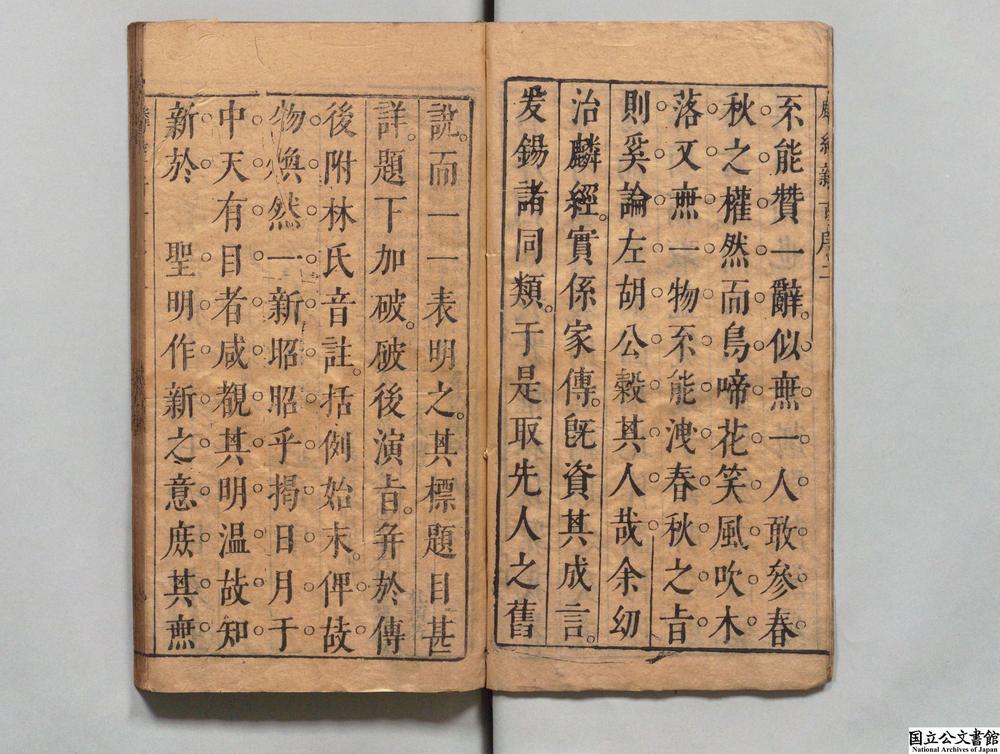 不能贊一辭似無一人敢參春
秋之權然而鳥啼花笑風吹木
落又無一物不能洩春秋之旨
則奚論左胡公穀其人哉余幼
治麟經實係家傳旣資其成言
爰錫諸同類于是取先人之舊
說而一一表明之其標題目甚
詳題下加破破後演旨并於傳
後附林氏音註括例始末俾故
物煥然一新昭昭乎揭日月于
中天有目者咸覩其明温故知
新於　聖明作新之意庶其無
国立公文書館
National Archives of Japan